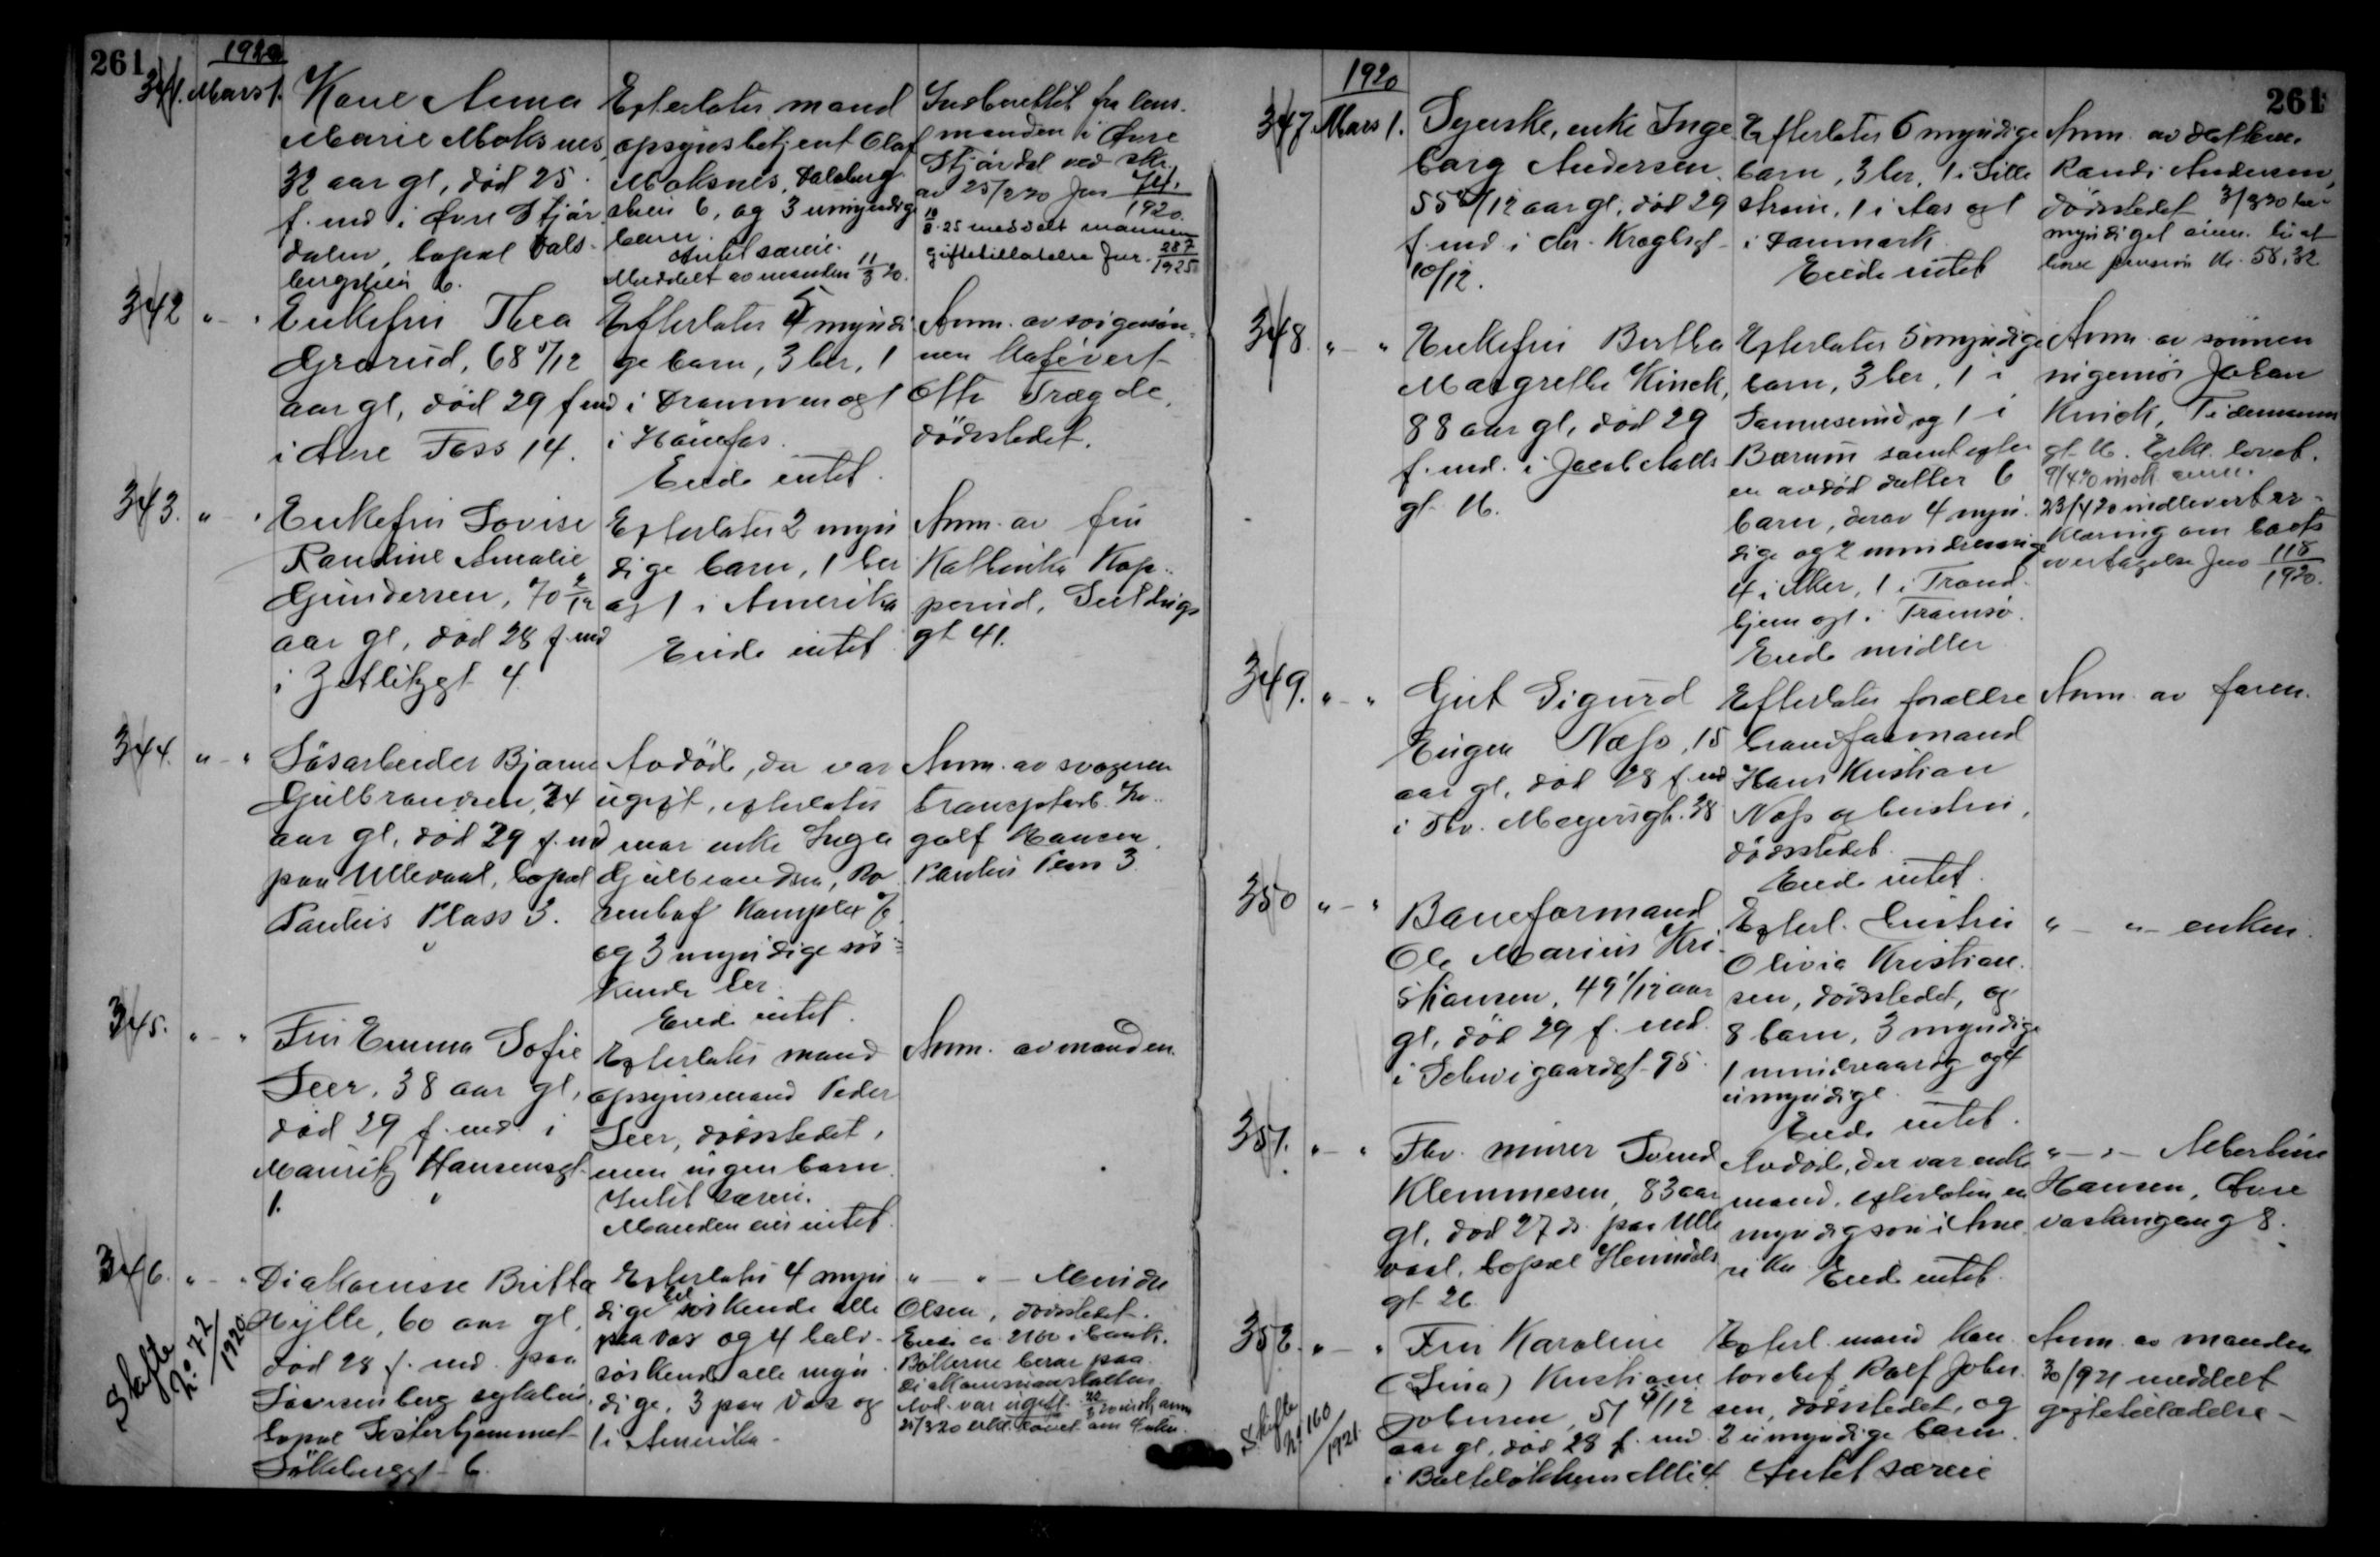 261
1920
341. Mars 1.
Kone Anna
Marie Moksnes,
32 aar gl, død 25
f. md i Øvre Stjør
dalen, bopæl Vals-
bergsveien 6.
Efterlater mand
opsynsbetjent Olaf
Moksnes,
veien 6, og 3 umyndige
barn.
Intet særeie.
Meddelt av manden 11/3 20.
Indberettet fra lens-
manden i Øvre
Stjørdal ved skr.
av 25/2 20 Jnr
1920.
8.25 meddelt mannen
giftetillatelse Jnr. 287/1925
342 " - "
Enkefru Thea
Grorud, 68 5/12
aar gl, død 29 f md
i Øvre Foss 14.
Efterlater 5 myndi
ge barn, 3 her, 1
i Drammen og 1
i Hønefos.
Eiede intet.
Anm. av svigersøn-
nen Kafévert
Otto Trægde,
dødsstedet.
343. " - "
Enkefru Lovise
Pauline Amalie
Gundersen, 70 2/12
aar gl, død 28 f. md
i Zetlitzgt 4.
Efterlater 2 myn
dige barn, 1 her
og 1 i Amerika
Eiede intet
Anm. av fru
Kathinka Kop-
perud,
gt 41.
344. " - "
Løsarbeider Bjarne
Gulbrandsen, 24
aar gl, død 29 f. md
paa Ullevaal, bopæl
Paulus Plass 3.
Avdøde, der var
ugift, efterlater
mor enke Inga
Gulbrandsen, Ro
senhof Kompleks
og 3 myndige søs-
kende her.
Eiede intet.
Anm. av svogeren
transportarb. In-
golf Hansen,
Paulus Plass 3.
345. " - "
Fru Emma Sofie
Seer, 38 aar gl,
død 29 f. md. i
Mauritz Hansensgt
1.
Efterlater mand
opsynsmand Peder
Seer, dødsstedet,
men ingen barn.
Intet særeie.
Manden eier intet.
Anm. av manden.
346. " - "
Skifte No 72/1920
Diakonisse Britta
Hylle, 60 aar gl,
død 28 f. md. paa
Lovisenberg sykehus,
bopæl Søsterhjemmet
6.
Efterlater 4 myn
dige hel søskende alle
paa Vos og 4 halv-
søskende alle myn
dige, 3 paa Vos og
1 i Amerika.
" - " -
Olsen, dødsstedet.
Eiede ca 2100 i bank.
Bøkerne beror paa
Diakonissanstalten.
Avd. var ugift.
1920
261
347 Mars 1.
Syerske, enke Inge
borg Andersen,
aar gl, død 29
f. md. i Chr. Kroghsgt
10/12.
Efterlater 5 myndige
barn, 3 her, 1 i Lille
strøm, 1 i Aas og 1
i Danmark
Eiede intet
Anm. av datteren
Randi Andersen,
dødsstedet 3/3 20 be-
myndiget anm. til at
heve pension Kr. 58.32
348. " - "
Enkefru Bertha
Margrethe Kinck,
88 aar gl, død 29
f. md. i Jacob Aalls
gt 16.
Efterlater 5 myndige
barn, 3 her, 1 i
og 1 i
Bærum samt efter
en avdød datter 6
barn, derav 4 myn
dige og 2 mindreaarige
4 i Aker, 1 i Trond
hjem og 1 i Tromsø.
Eiede midler
Anm. av sønnen
ingeniør Johan
Kinck, Tidemanns
gt 16. Erkl. lovet.
23/4 20 indlevert er-
klæring om boets
overtagelse Jnr 118/1920.
349. " - "
Gut Sigurd
Eugen Næss, 15
aar gl, død 28 f. md
i Thv. Meyersgt. 38
Efterlater forældre
Hans Kristian
Næss og hustru,
dødsstedet.
Eiede intet.
Anm. av faren.
350 " - "
Baneformand
Ole Marius Kri-
stiansen, 49 1/12 aar
gl, død 29 f. md.
i Schweigaardsgt 95.
Efterl. hustru
Olivia Kristian-
sen, dødsstedet, og
8 barn, 3 myndige
1 mindreaarig og 4
umyndige.
Eiede intet.
" - " - enken.
351. " - "
Fhv. murer Svend
Klemmesen, 83 aar
gl, død 27 ds. paa Ulle
vaal, bopæl Heimdals
gt 26.
Avdøde, der var enke
mand, efterlater en
myndig søn i Ame
rika Eiede intet.
" - " - Albertine
Hansen, Øvre
8.
352. " - "
Skifte No 160/1921.
Fru Karoline
(Lina) Kristiane
Johnsen, 51 4/12
aar gl, død 28 f. md.
i Bolteløkkens Alle 4.
Efterl. mand kon
torchef Rolf John
sen, dødsstedet, og
2 umyndige barn.
Intet særeie
Anm. av manden
meddelt
giftetilladelse